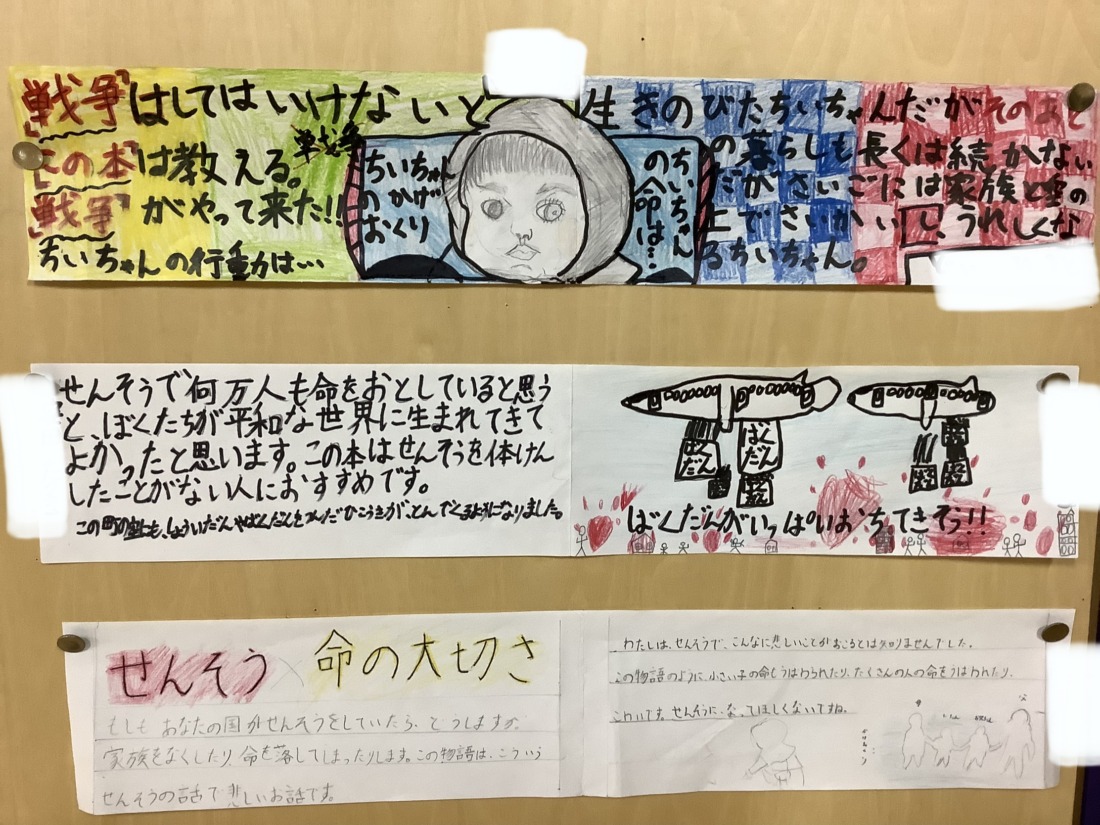 「戦争」はしてはいけないと
「この本」は教える。
「戦争」がやって来た!!
ちいちゃんの行動は…
ちいちゃん
のかげ
おくり
ちいちゃん
の命は…
生きのびたちいちゃんだがそのあと
の暮らしも長くは続かない
だがさいごには家族と空の
上でさいかいし、うれしくな
るちいちゃん。
せんそうで何万人も命をおとしていると思う
と、ぼくたちが平和な世界に生まれてきて
よかったと思います。この本はせんそうを体けん
したことがない人におすすめです。
この町の空にも、しょういだんやばくだんをつんだひこうきが、とんでくるようになりました。
ばく
だん
ばく
だん
ばくだんがいっぱいおちてきそう!!
せんそう×命の大切さ
もしもあなたの国がせんそうをしていたら、どうしますか
家族をなくしたり命を落してしまったりします。この物語は、こういう
せんそうの話で悲しいお話です。
わたしは、せんそうで、こんなに悲しいことがおこるとは知りませんでした。
この物語のように、小さい子の命もうばわられたり、たくさんの人の命をうばわれたり、
こわいです。せんそうに、なってほしくないですね。